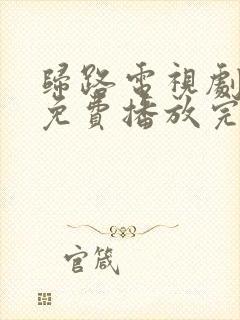 歸路電視劇
免費播放完
官箴